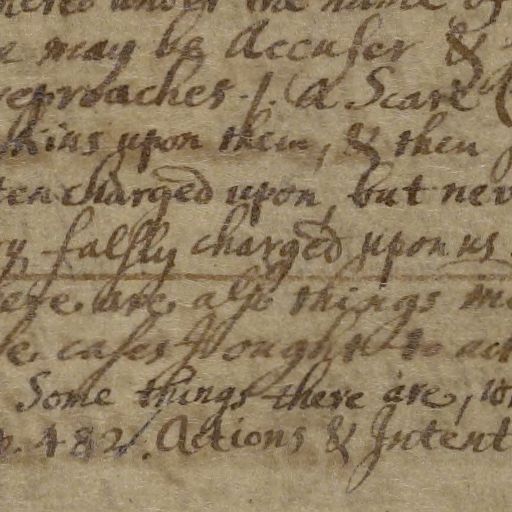 under the name of
may be Accuser &
reproaches ·/. A Scare
skins upon them, & then
ten charged upon, but nev
falsly charged upon us
ere are also things
cases I ought to act
Some things there are,
p. 482. Actions & Intent